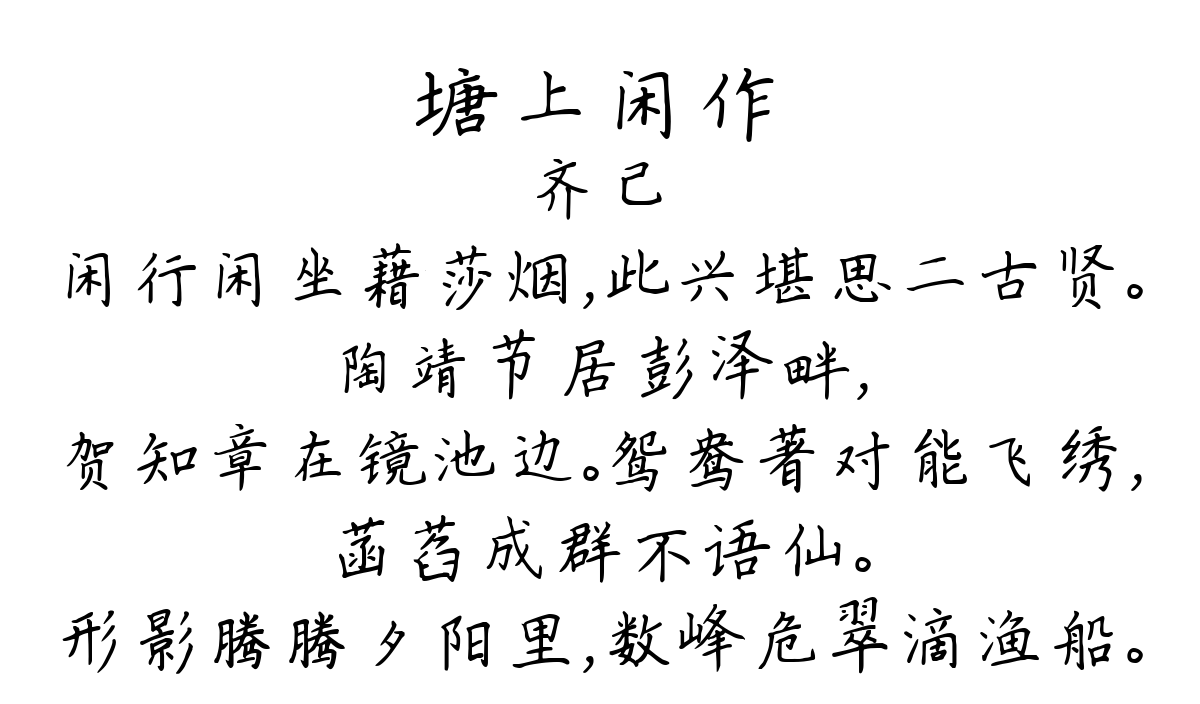 塘上闲作
齐己
闲行闲坐藉莎烟,此兴堪思二古贤。
陶靖节居彭泽畔,
贺知章在镜池边。鸳鸯著对能飞绣,
菡萏成群不语仙。
形影腾腾夕阳里,数峰危翠滴渔船。